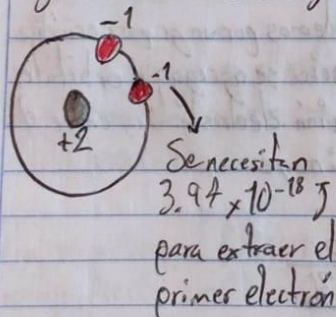 -1
-1
+2
Se necesitan
3.94 × 10⁻¹⁸ J
para extraer el
primer electrón